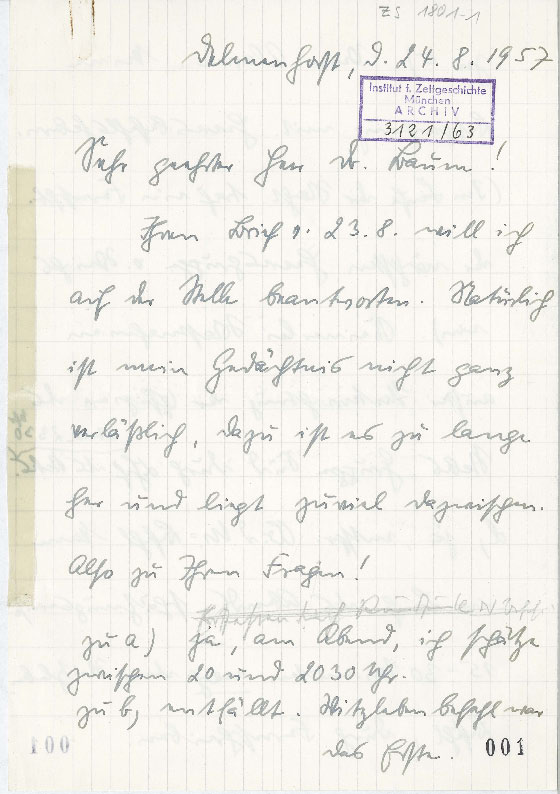 ZS 1801-1
Delmenhorst, d. 24. 8. 1957
Institut f. Zeitgeschichte
München
ARCHIV
3121/63
Sehr geehrter Herr Dr. Baum!
Ihren Brief v. 23. 8. will ich
auf der Stelle beantworten. Natürlich
ist mein Gedächtnis nicht ganz
verläßlich, dazu ist es zu lange
her und liegt zuviel dazwischen.
Also zu Ihren Fragen!
zu a) ja, am Abend, ich schätze
zwischen 20 und 2030 Uhr.
zu b) entfällt. Witzleben befehl war
das Erste.
100
001